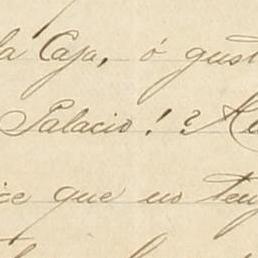 la Caja, ó gust
Palacio! ?
ce que no teng